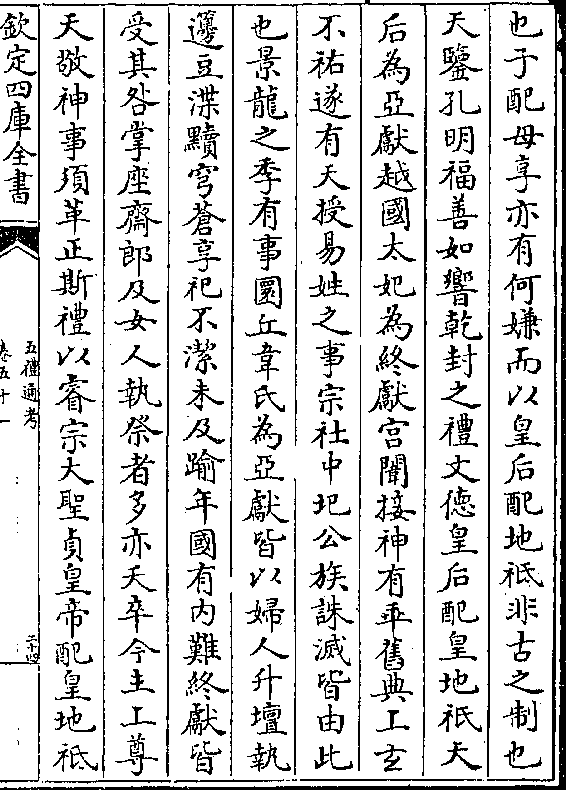 也子配母享亦有何嫌而以皇后配地祇非古之制也
天鑒孔明福善如響乾封之禮文德皇后配皇地祇天
后為亞獻越國太妃為終獻宮闈接神有乖舊典上玄
不祐遂有天授易姓之事宗社中圮公族誅滅皆由此
也景龍之季有事圜丘韋氏為亞獻皆以婦人升壇執
籩豆渫黷穹蒼享祀不潔未及踰年國有內難終獻皆
受其咎掌座齋郎及女人執祭者多亦夭卒今主上尊
天敬神事須革正斯禮以睿宗大聖貞皇帝配皇地祇
欽定四庫全書
五禮通考
卷五十一
二十四